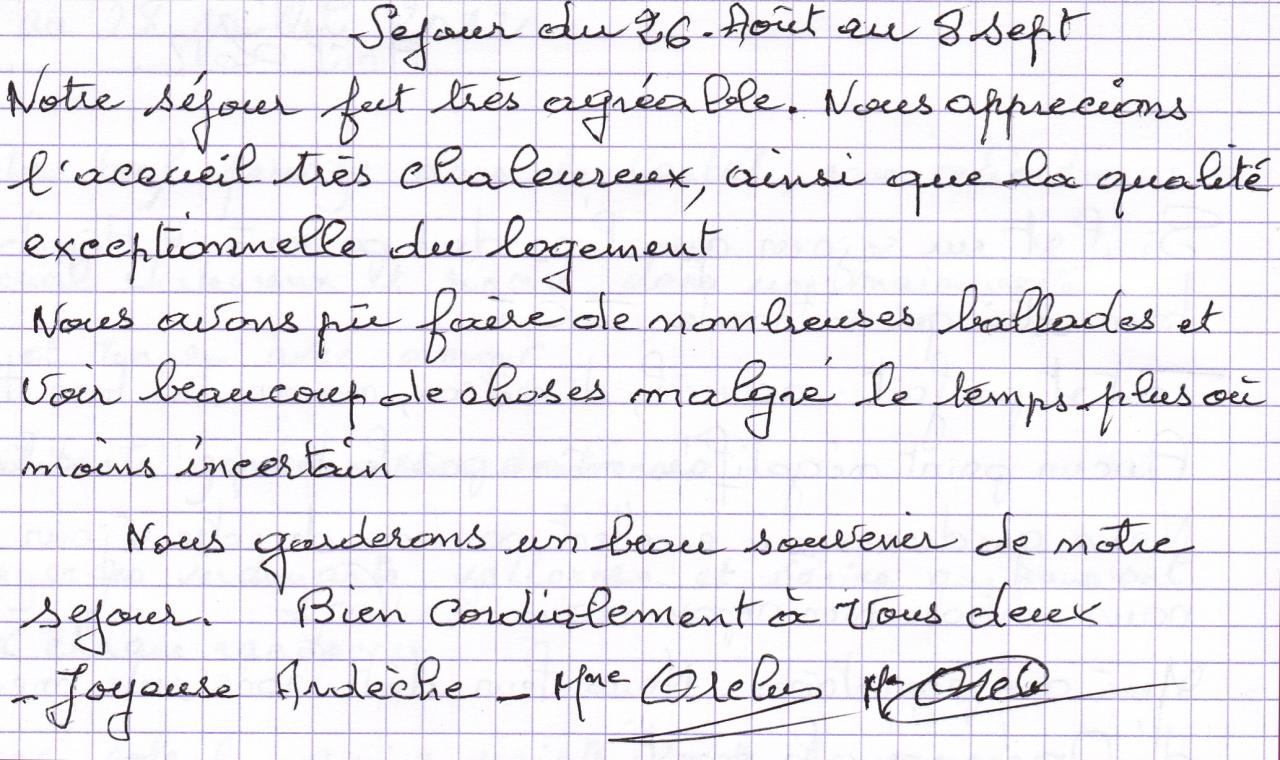 Sejour du 26. Août au 8 sept
Notre séjour fut très agréable. Nous apprecions
l'accueil très chaleureux, ainsi que la qualité
exceptionnelle du logement
Nous avons pû faire de nombreuses ballades et
voir beaucoup de choses malgré le temps plus où
moins incertain
Nous garderons un beau souvenir de notre
sejour. Bien cordialement à vous deux
- Joyeuse Ardèche - Mme